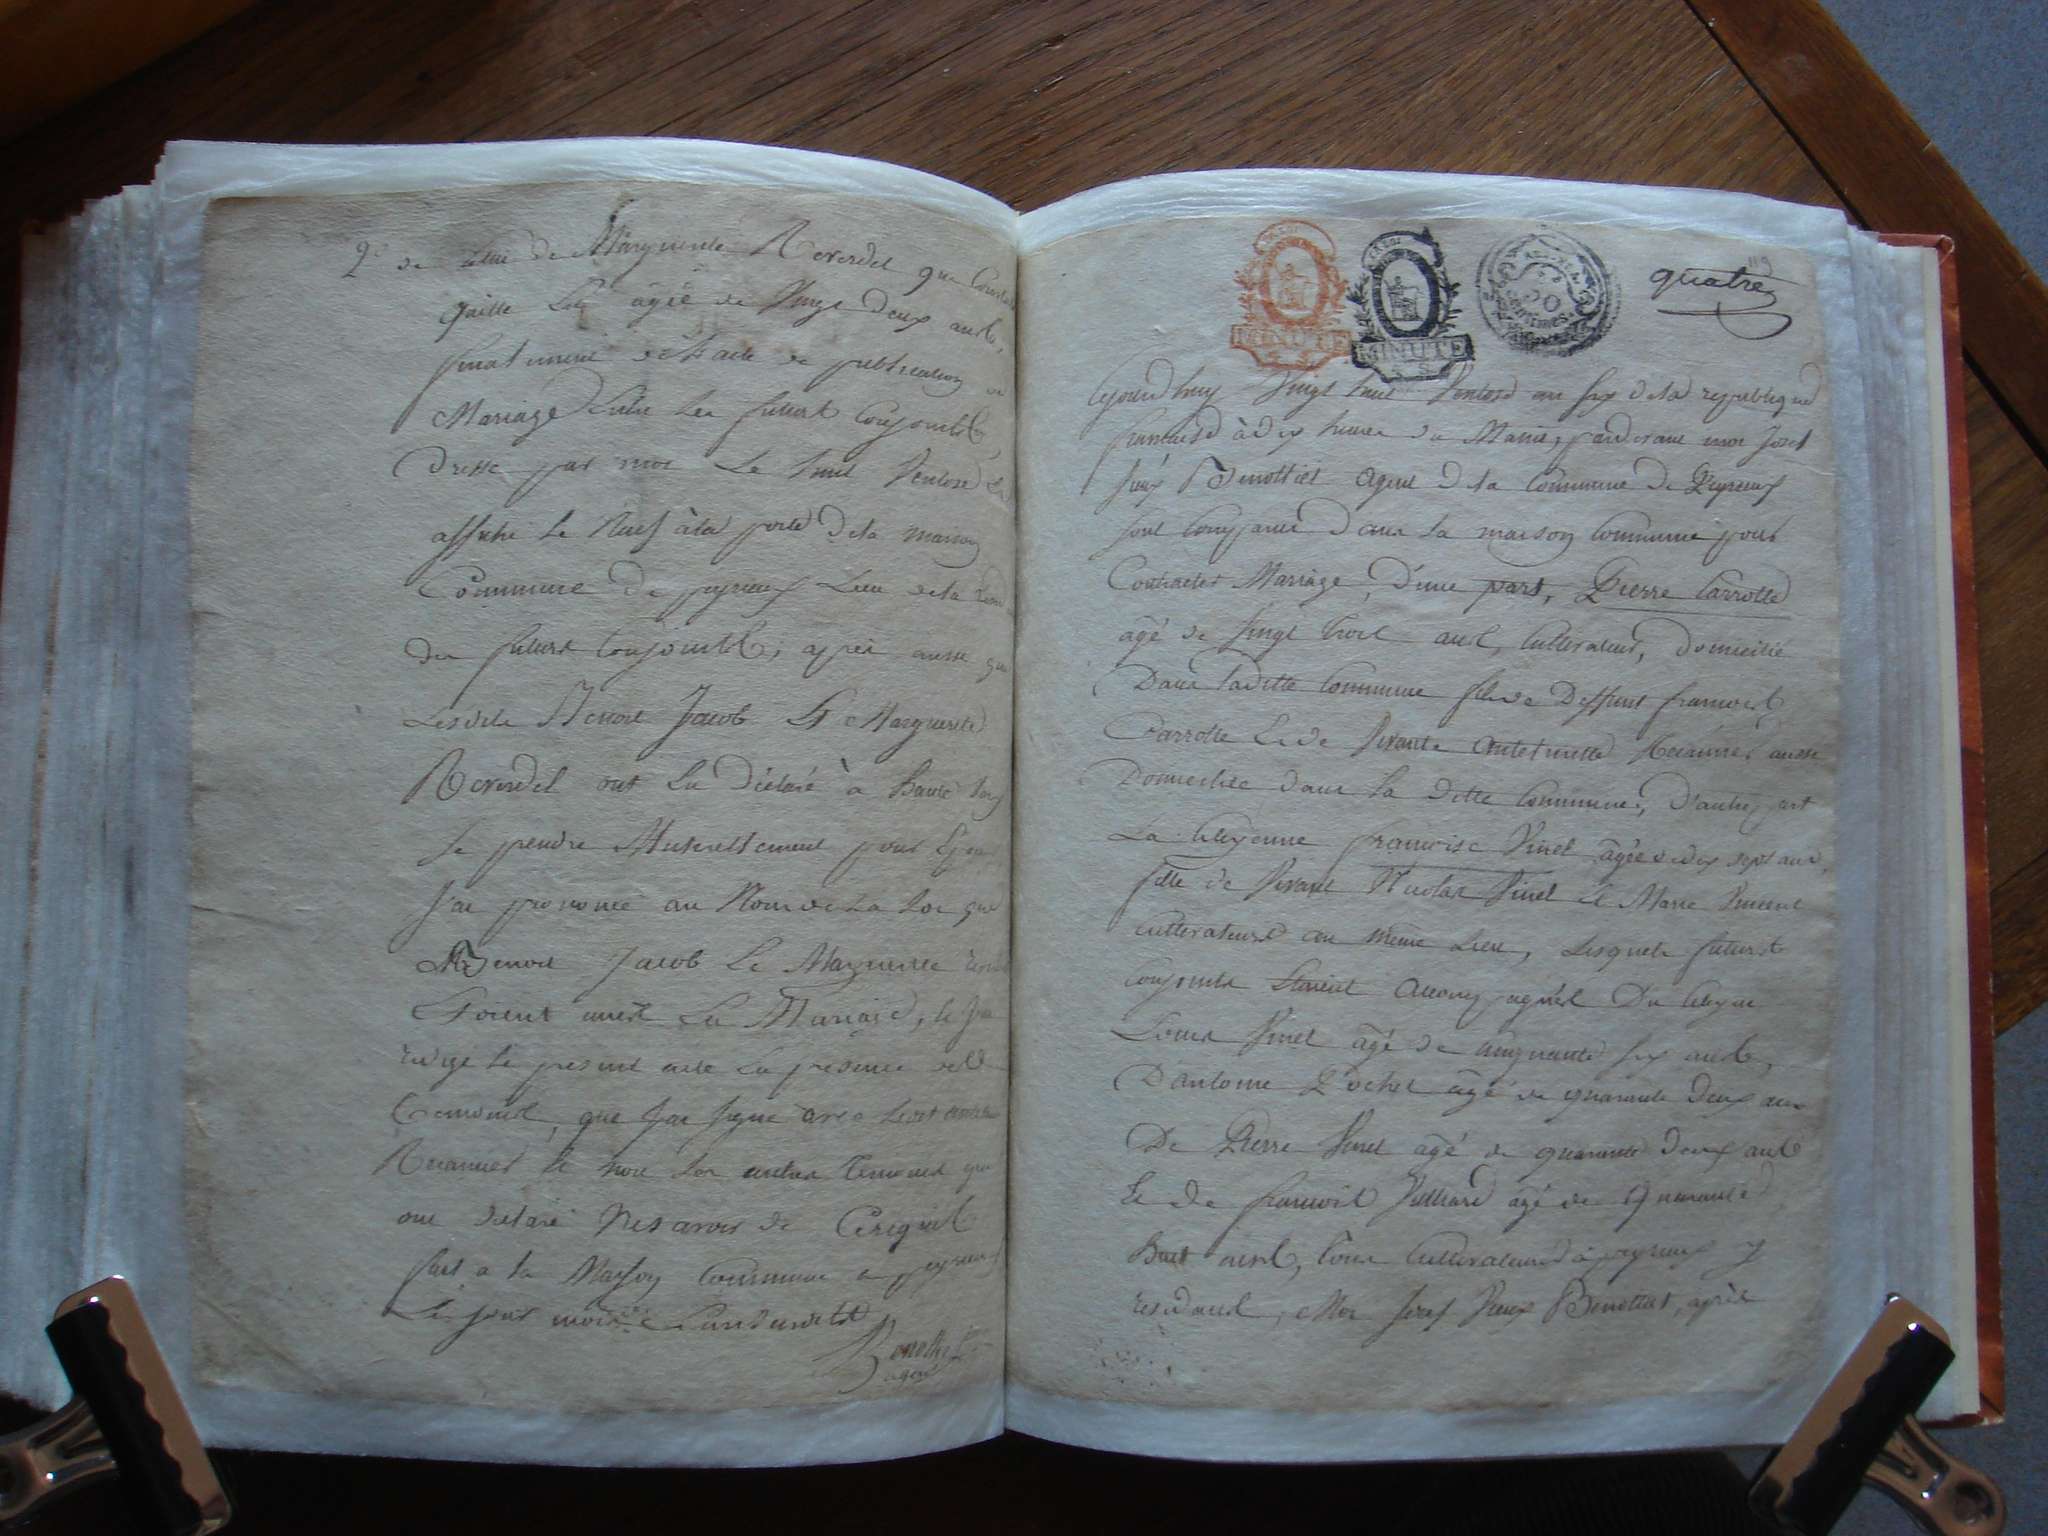 2° de celui de Marguerite Reverdel que
quille Est âgée de Vingt Deux ans,
de publication de
Mariage Entre Les futurs Conjoints,
Dressé par moi Le huit Ventose Et
affiché le Neuf à la porte De la maison
Commune De peyreux Lieu de la
Des futurs Conjoints; après aussi que
Lesdits Benoit Jacob Et Marguerite
Reverdel ont Eu Déclaré à haute voix
Se prendre Mutuellement pour Epoux
J'ai prononcé au Nom de La Loi que
Benoit Jacob Et Marguerite
Etoient unis En Mariage, Et J'ai
redigé le present acte En presence des
temoins, que J'ai signé avec
Et non Les autres Temoins qui
ont declaré Ne savoir de Ce requis
fait a la Maison Commune a peyreux
Les jour mois Et an susdits
Benottiet
agent
MINUTE
MINUTE
50
CENTIMES
quatre
119
Cejourd'huy Vingt huit Ventose an six de la republique
francaise à dix heures du Matin, pardevant moi Josef
Vieux Benottiet Agent De la Commune de Peyreux
sont Comparus Dans La maison Commune pour
Contracter Mariage, D'une part, Pierre Carrotte
agé de Vingt trois ans, Cultivateur, Domicilié
Dans laditte Commune fils de Deffunt francois
Carrotte Et de Vivante Antoinette aussi
Domiciliée Dans La ditte Commune, D'autre part
La Citoyenne francoise Pinet, âgée de dix sept ans,
fille de Vivant Nicolas Pinet Et Marie Vincent
Cultivateurs au même Lieu, Lesquels futurs
Conjoints Etaient Accompagnés Du Citoyen
Louis Pinet âgé de Cinquante six ans,
D'antoine Rochet âgé de quarante Deux ans
De Pierre Pinet agé de quarante Deux ans
Et De francois Julliard agé de Quarante
Huit ans, tous Cultivateurs à peyreux y
residants, Moi Josef Vieux Benottiet, après